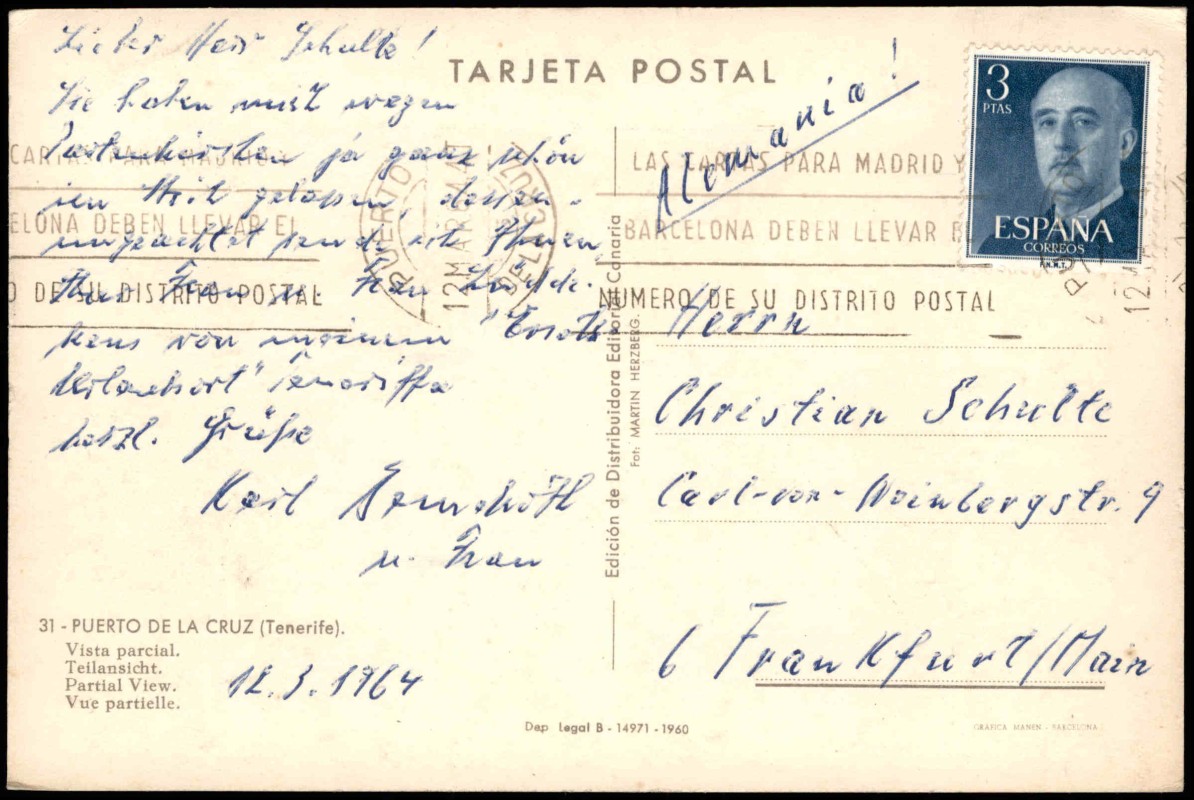 Lieber Herr Schulte!
Sie haben mich wegen
ja ganz schön
im Stich gelassen, dessen-
ungeachtet sende ich Ihnen,
Ihrer Frau u. Frau
kens von meinem "Ersatz
Urlaubsort" Teneriffa
herzl. Grüße
Karl
u. Frau
31 - PUERTO DE LA CRUZ (Tenerife).
Vista parcial.
Teilansicht.
Partial View.
Vue partielle.
12.3.1964
TARJETA POSTAL
Alemania!
3
PTAS
ESPAÑA
CORREOS
F.N.M.T.
CARTAS PARA MADRID
ELONA DEBEN LLEVAR EL
O DE SU DISTRITO POSTAL
PUERTO DE LA CRUZ
12 MAR
LAS CARTAS PARA MADRID Y
BARCELONA DEBEN LLEVAR E
NUMERO DE SU DISTRITO POSTAL
Edición de Distribuidora Editorial Canaria
Fot: MARTIN HERZBERG.
Herrn
Christian Schulte
Carl-von-Weinbergstr. 9
6 Frankfurt/Main
Dep Legal B - 14971 - 1960
GRÁFICA MANEN - BARCELONA